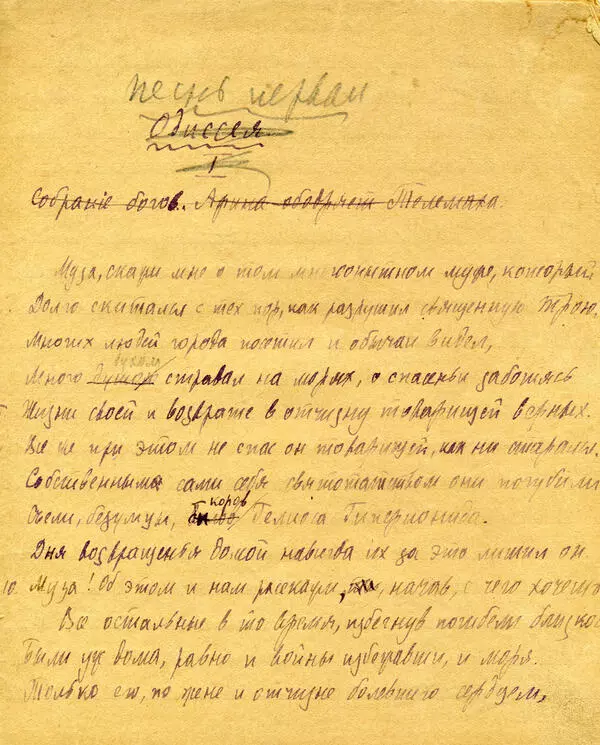 песнь первая
Одиссея
1
Собрание богов. Афина ободряет Телемаха.
Муза, скажи мне о том многоопытном муже, который
Долго скитался с тех пор, как разрушил священную Трою,
Многих людей города посетил и обычаи видел,
духом
Много душою страдал на морях, о спасеньи заботясь
Жизни своей и возврате в отчизну товарищей верных.
Все же при этом не спас он товарищей, как ни старался.
Собственным сами себя святотатством они погубили
коров
Съели, безумцы, Гелиоса Гиперионида.
Дня возвращенья домой навсегда их за это лишил он
10. Муза! Об этом и нам расскажи, начав, с чего хочешь
Все остальные в то время, избегнув погибели близкой
Были уж дома, равно и войны избежавши, и моря.
Только его, по жене и отчизне болевшего сердцем,